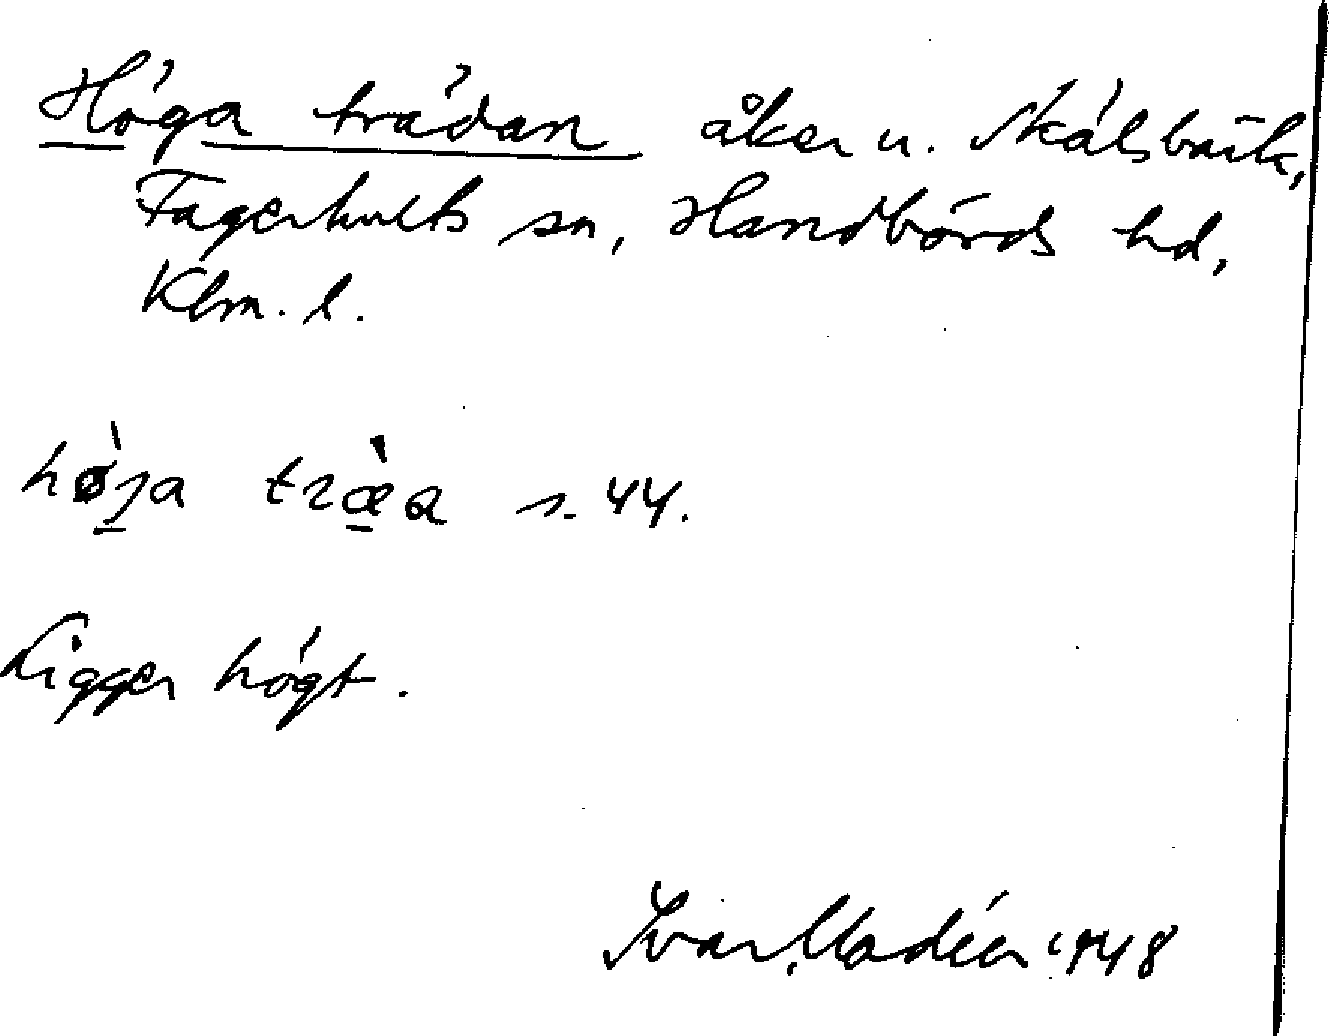 Höga trädan åker u. Skälsbäck,
Fagerhults sn, Handbörds hd,
Klm. l.
hø̀ja træ̀a s. 44.
Ligger högt.
Ivar Modéer 1948